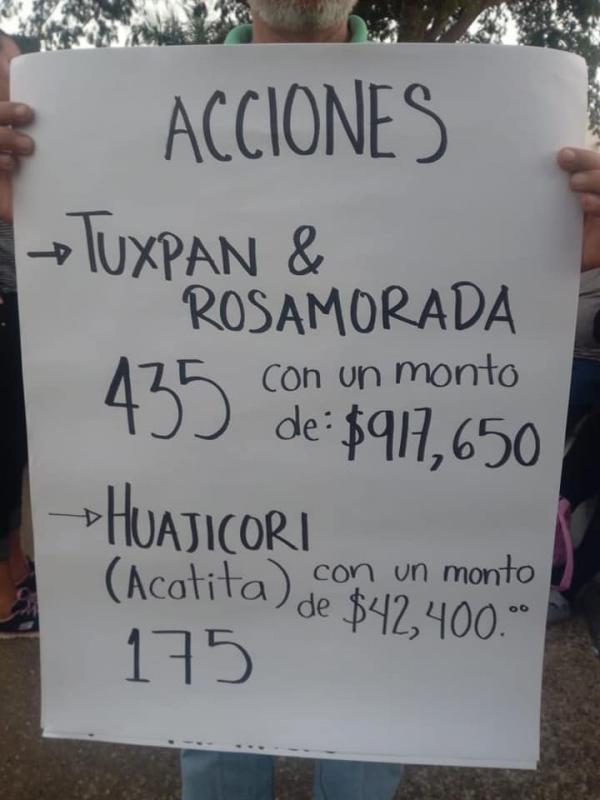 ACCIONES
→ TUXPAN &
ROSAMORADA
435 con un monto
de: $917,650
→ HUAJICORI
(Acatita) con un monto
de $42,400.⁰⁰
175